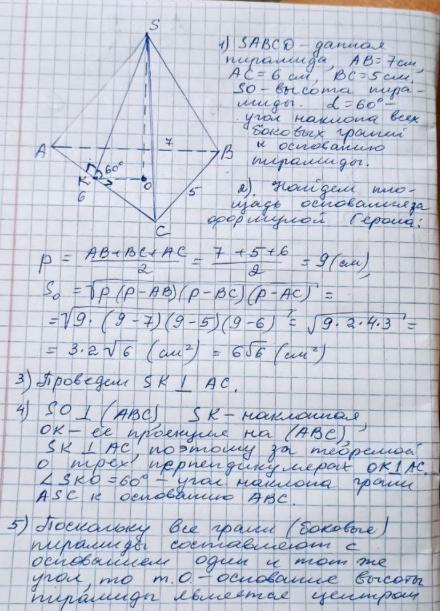 S
1) SABCD - данная
пирамида, AB=7см,
AC=6 см, BC=5см,
SO - высота пира-
миды. α=60° -
угол наклона всех
боковых граней
к основанию
пирамиды.
A
7
B
60°
K
O
5
6
C
2). Найдем пло-
щадь основания за
формулой Герона:
p = AB+BC+AC / 2 = 7+5+6 / 2 = 9 (см),
S₀ = √p(p-AB)(p-BC)(p-AC) =
= √9·(9-7)(9-5)(9-6) = √9·2·4·3 =
= 3·2√6 (см²) = 6√6 (см²)
3) Проведем SK⊥AC.
4) SO⊥(ABC), SK - наклонная,
OK - её проекция на (ABC),
SK⊥AC, поэтому за теоремой
о трех перпендикулярах OK⊥AC.
∠SKO=60° - угол наклона грани
ASC к основанию ABC.
5) Поскольку все грани (боковые)
пирамиды составляют с
основанием один и тот же
угол, то т.О - основание высоты
пирамиды является центром